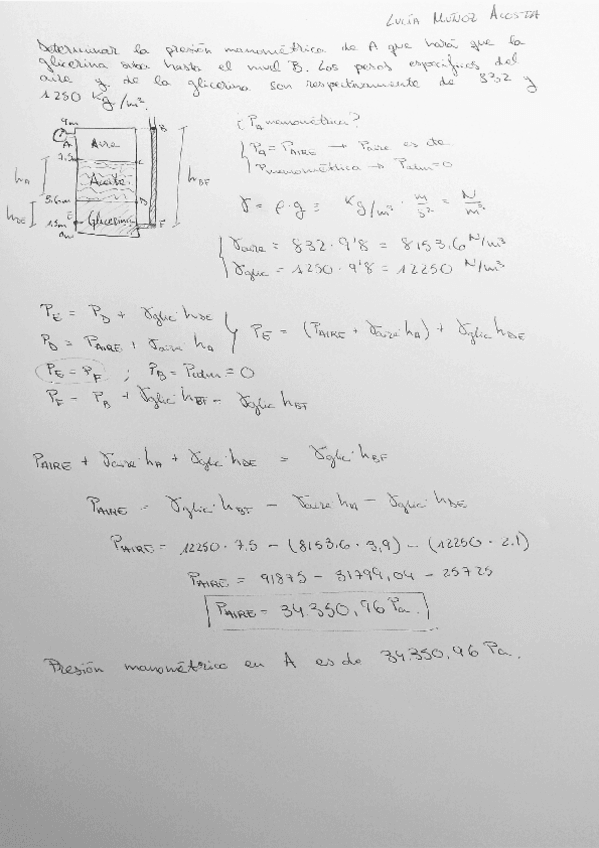 LUCÍA MUÑOZ ACOSTA
Determinar la presión manométrica de A que hará que la
glicerina suba hasta el nivel B. Los pesos específicos del
aire y de la glicerina son respectivamente de 832 y
1250 Kg/m³.
9m
A
7.5
Aire
B
C
hA
Aceite
hBF
3.6m
D
hDE
E
1.5m
Glicerina
F
0m
¿PA manométrica?
PA = PAIRE → PAIRE es de
Pmanométrica → Patm = 0
γ = ρ · g = Kg/m³ · m/s² = N/m³
γaire = 832 · 9'8 = 8153,6 N/m³
γglic = 1250 · 9'8 = 12250 N/m³
PE = PD + γglic · hDE
PD = PAIRE + γaire · hA
PE = (PAIRE + γaire · hA) + γglic · hDE
PE = PF ; PB = Patm = 0
PF = PB + γglic · hBF = γglic · hBF
PAIRE + γaire · hA + γglic · hDE = γglic · hBF
PAIRE = γglic · hBF - γaire · hA - γglic · hDE
PAIRE = 12250 · 7.5 - (8153,6 · 3,9) - (12250 · 2.1)
PAIRE = 91875 - 31799,04 - 25725
PAIRE = 34.350,96 Pa.
Presión manométrica en A es de 34.350,96 Pa.